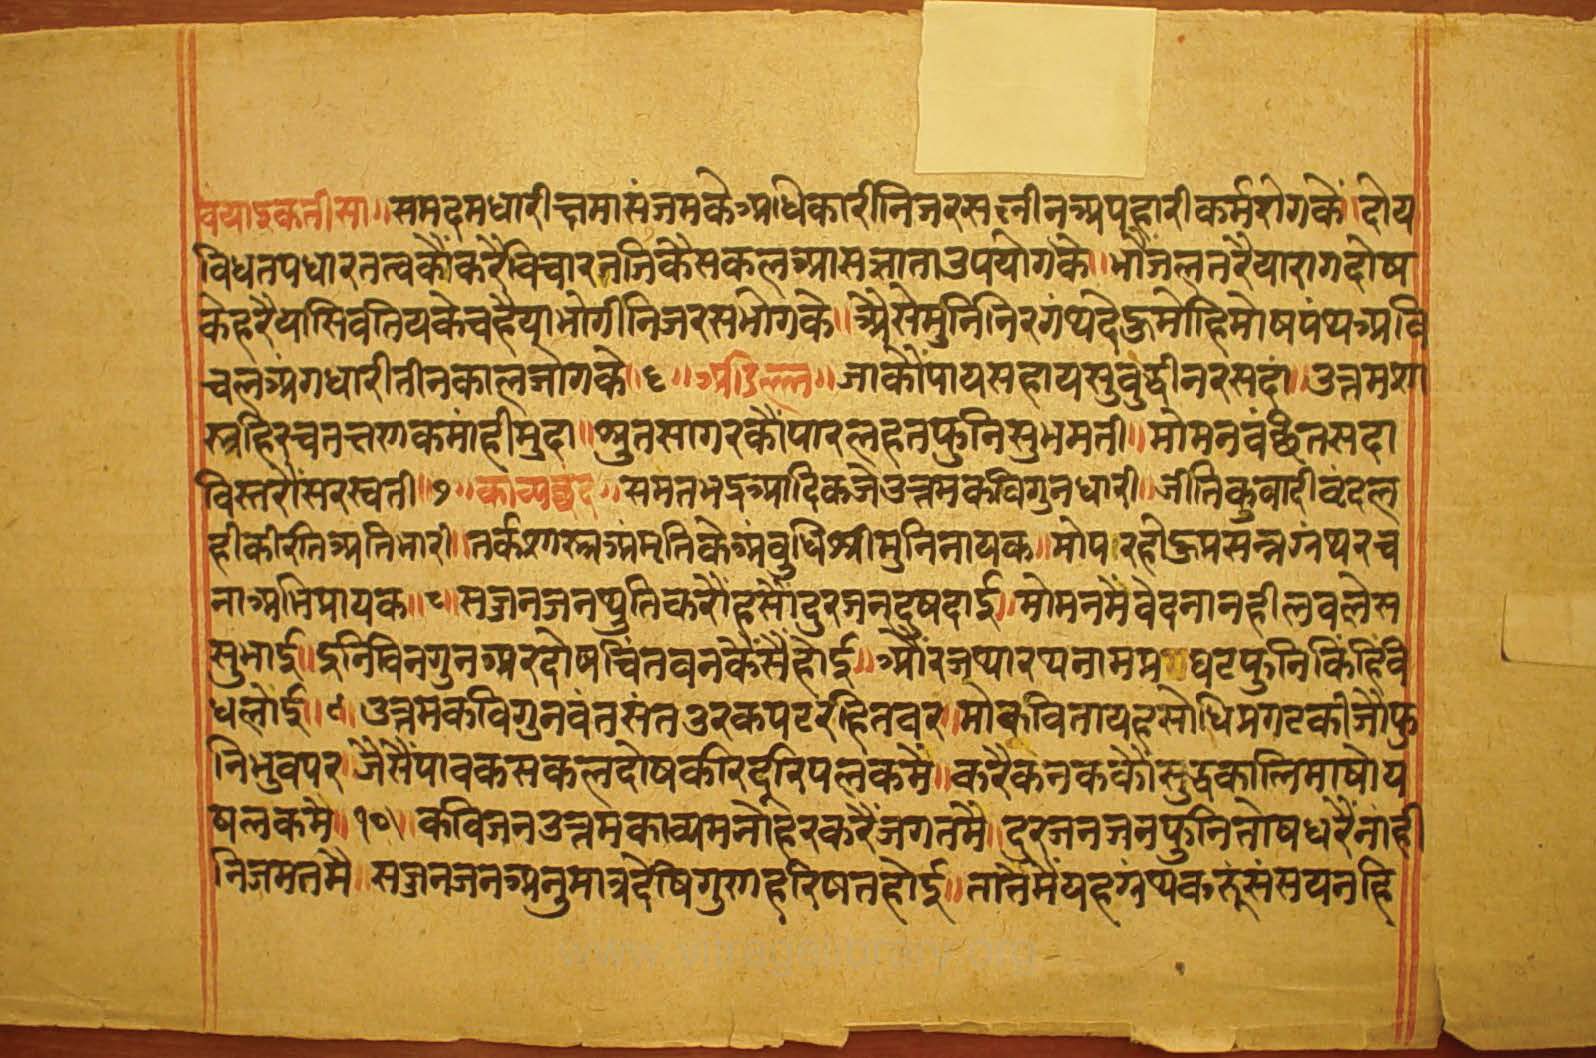 वयाइकतीसा॥समदमधारीत्तमासंजमकेअधिकारीनिजरसलीनअपहारीकर्मरोगके॥दोय
विधतपधारतत्वकौंकरैंविचारतजिकैसकलआसज्ञाताउपयोगके॥भौजलतरैयारागदोष
केहरैयासिवतियकेचहैयाभोगीनिजरसभोगके॥अैसेमुनिनिरगंथदेऊमोहिमोषपंथअवि
चलअंगधारीतीनकालजोगके॥६॥अडिल्ल॥जाकौंपायसहायसुबुद्धीनरसदां॥उत्तमशा
स्त्रहिरचनत्तणकमांहीमुदा॥श्रुतसागरकौंपारलहतफुनिसुभमती॥मोमनवंछितसदा
विस्तरौंसरस्वती॥७॥काव्यछंद॥समतभद्रआदिकजेउत्तमकविगुनधारी॥जीतिकुवादीवंदल
हीकीरतिअतिभारी॥तर्कशास्त्रअंमृतिकेअंबुधिश्रीमुनिनायक॥मोपरहोऊप्रसन्नग्रंथरच
नाअभिप्रायक॥८॥सज्जनजनथुतिकरौंहसौंदुरजनदुषदाई॥मोमनमैंवेदनानहीलवलेस
सुभाई॥इनिविनगुनअरदोषचिंतवनकैंसैंहोई॥औरजथारथनामप्रघटफुनिकिंहिंवि
धलोई॥९॥उत्तमकविगुनवंतसंतउरकपटरहितवर॥मोकवितायहसोधिप्रगटकीजौफु
निभुवपर॥जैसैंपावकसकलदोषकीरदूरिपलकमैं॥करैकनककौंसुद्धकालिमाषोय
षलकमैं॥१०॥कविजनउत्तमकाव्यमनोहरकरैंजगतमैं॥दुरजनजनफुनितोषधरैंनांही
निजमतमैं॥सज्जनजनअनुमात्रदेषिगुणहरिषतहोई॥तातैंमैंयहग्रंथकरूंसंसयनहि
www.vitragelibrary.org